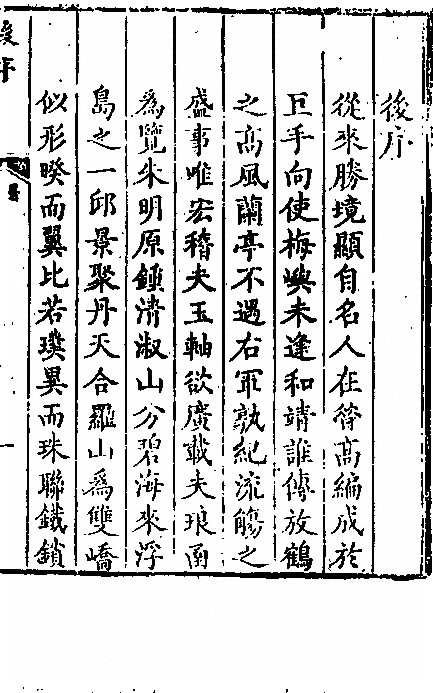 後序
從來勝境顯自名人在嘗高編成於
巨手向使梅嶼未逢和靖誰傳放鶴
之高風蘭亭不遇右軍孰紀流觴之
盛事唯宏稽夫玉軸欲廣載夫琅函
為覽朱明原鍾淸淑山分碧海來浮
島之一邱景聚丹天合羅山為雙嶠
似形暌而翼比若璞異而珠聯鐵鎖
後序